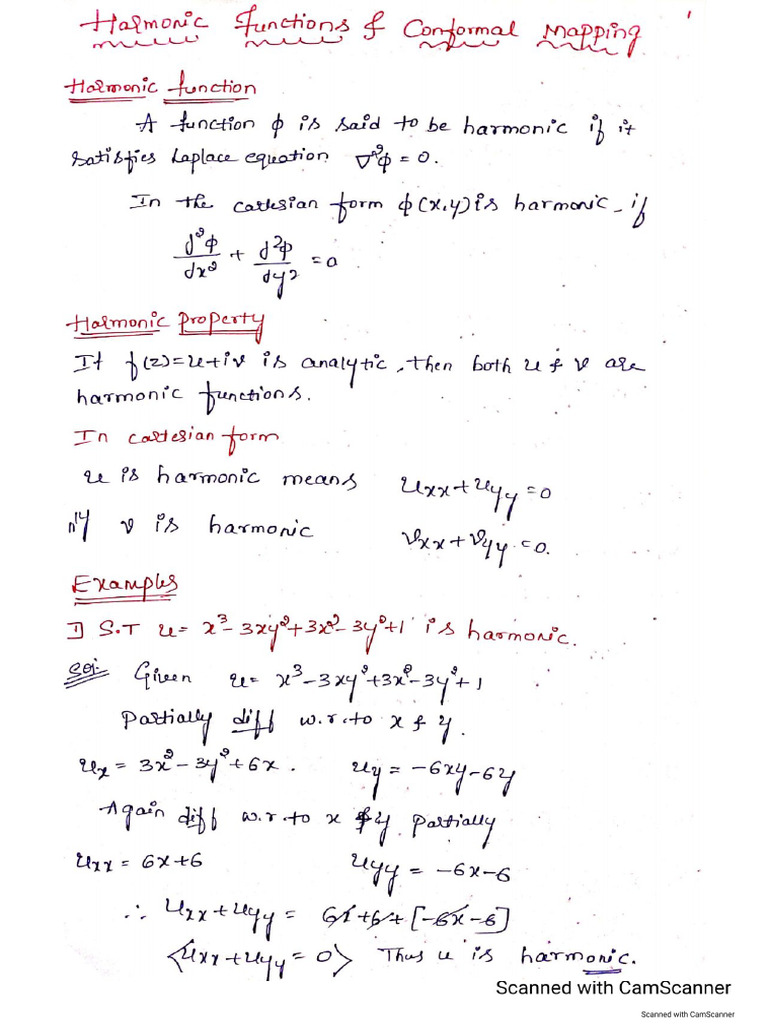 1
Harmonic Functions & Conformal Mapping
Harmonic function
A function φ is said to be harmonic if it
satisfies Laplace equation ∇²φ = 0.
In the cartesian form φ(x,y) is harmonic, if
d²φ/dx² + d²φ/dy² = 0
Harmonic Property
If f(z) = u+iv is analytic, then both u & v are
harmonic functions.
In cartesian form
u is harmonic means uxx + uyy = 0
|||ly v is harmonic vxx + vyy = 0.
Examples
1) S.T u = x³ - 3xy² + 3x² - 3y² + 1 is harmonic.
Sol: Given u = x³ - 3xy² + 3x² - 3y² + 1
Partially diff w.r.to x & y.
ux = 3x² - 3y² + 6x. uy = -6xy - 6y
Again diff w.r.to x & y partially
uxx = 6x + 6 uyy = -6x - 6
∴ uxx + uyy = 6x + 6 + [-6x - 6]
⟨uxx + uyy = 0⟩ Thus u is harmonic.
Scanned with CamScanner
Scanned with CamScanner